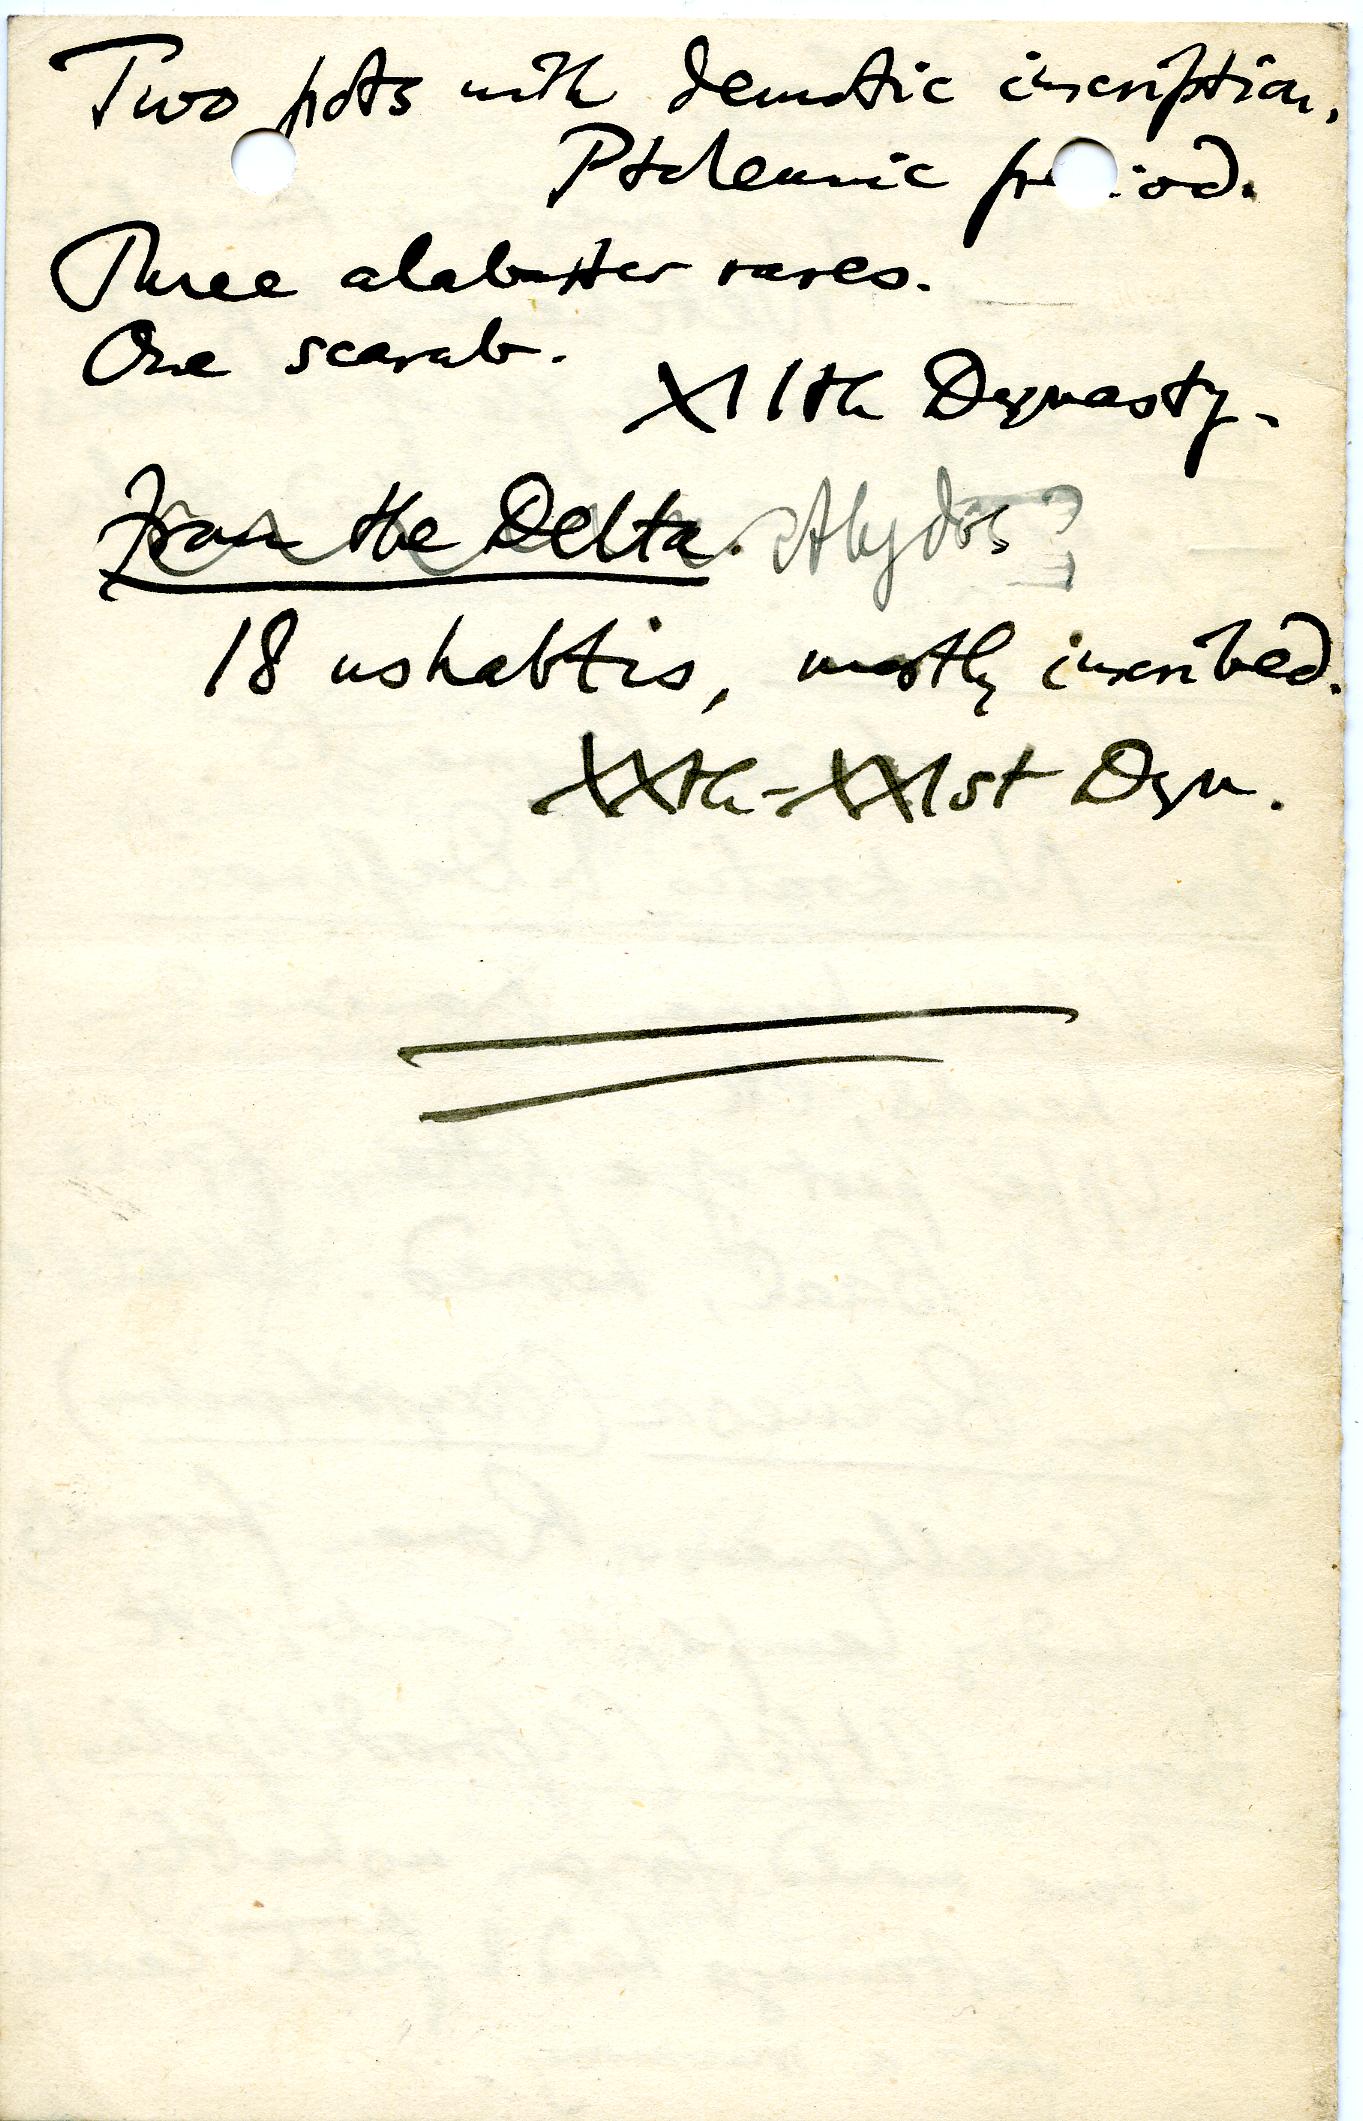 Two pots with demotic inscription.
Ptolemaic period.
Three alabaster vases.
One scarab.
XIIth Dynasty.
From the Delta. Abydos?
18 ushabtis, mostly inscribed.
XXth-XXIst Dyn.